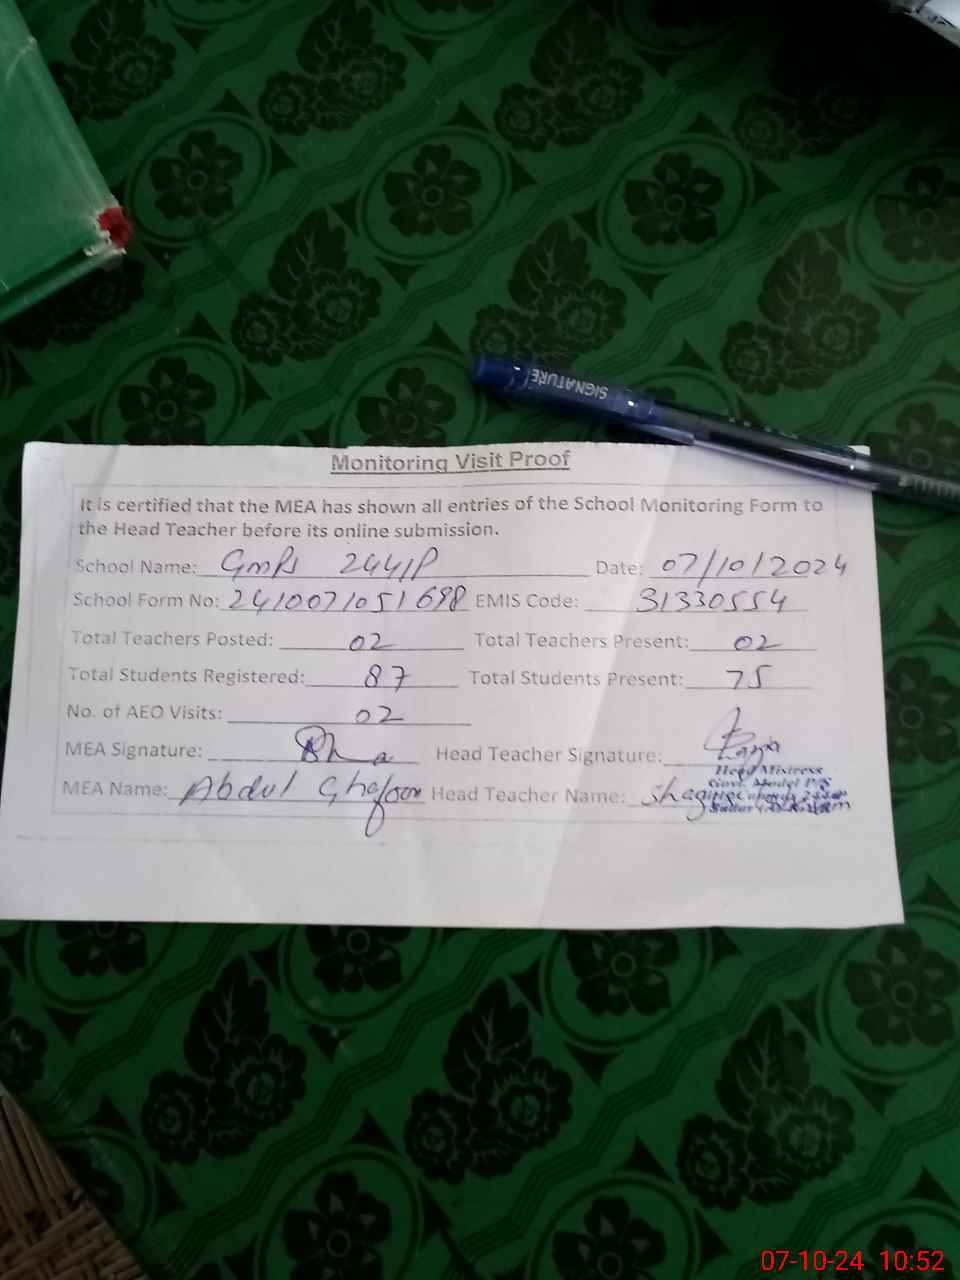 SIGNATURE
Monitoring Visit Proof
It is certified that the MEA has shown all entries of the School Monitoring Form to
the Head Teacher before its online submission.
School Name: GMPS 244/P Date: 07/10/2024
School Form No: 2410071051698 EMIS Code: 31330554
Total Teachers Posted: 02 Total Teachers Present: 02
Total Students Registered: 87 Total Students Present: 75
No. of AEO Visits: 02
MEA Signature: Head Teacher Signature:
Head Mistress
Govt. Model P/S
MEA Name: Abdul Ghafoor Head Teacher Name:
07-10-24 10:52